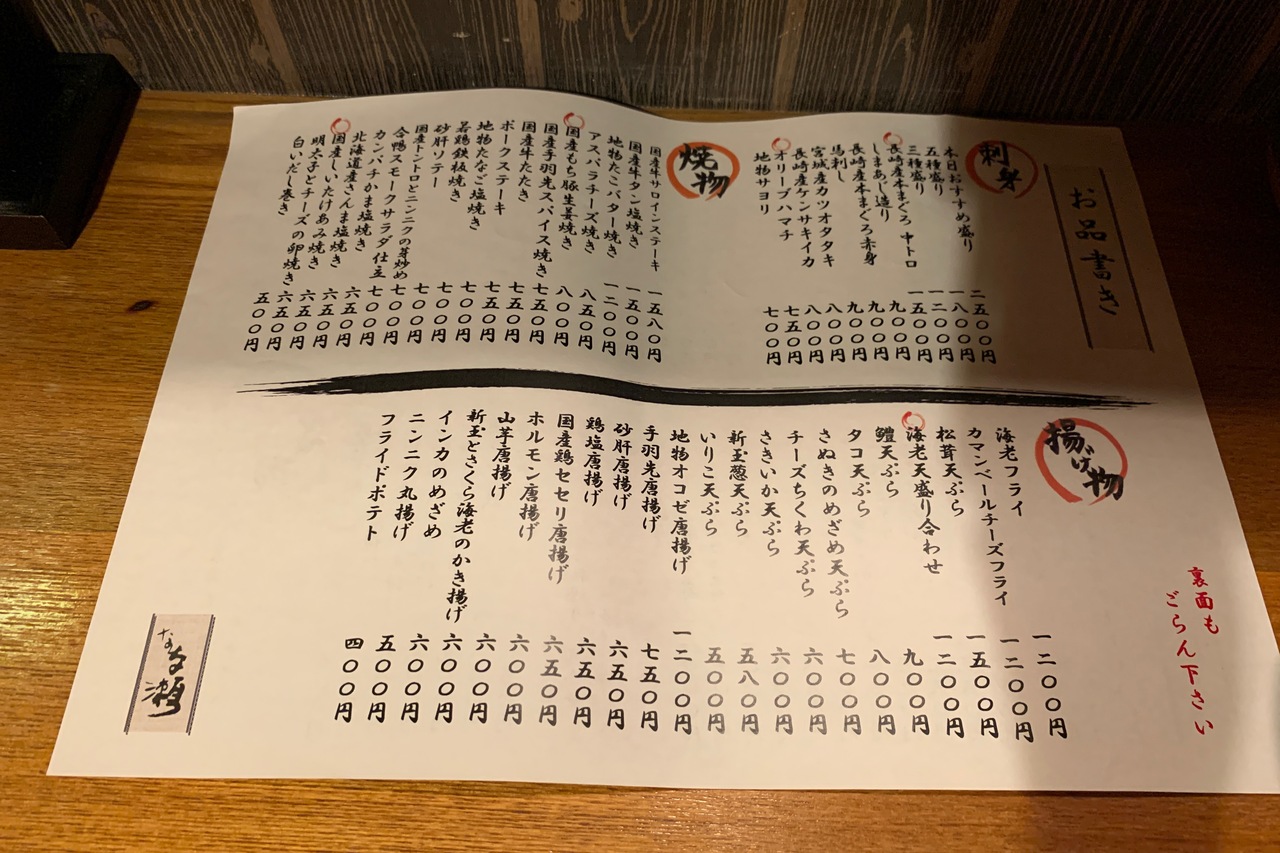 お品書き
刺身
本日おすすめ盛り 二五〇〇円
五種盛り 一八〇〇円
三種盛り 一二〇〇円
長崎産本まぐろ 中トロ 一五〇〇円
しまあじ造り 九〇〇円
長崎産本まぐろ赤身 九〇〇円
馬刺し 九〇〇円
宮城産カツオタタキ 八〇〇円
長崎産ケンサキイカ 八〇〇円
オリーブハマチ 七五〇円
地物サヨリ 七〇〇円
焼物
国産牛サロインステーキ 一五八〇円
国産牛タン塩焼き 一五〇〇円
地物たこバター焼き 一二〇〇円
アスパラチーズ焼き 八五〇円
国産もち豚生姜焼き 八〇〇円
国産手羽先スパイス焼き 七五〇円
国産牛たたき 七五〇円
ポークステーキ 七五〇円
地物たなご塩焼き 七〇〇円
若鶏鉄板焼き 七〇〇円
砂肝ソテー 七〇〇円
国産トントロとニンニクの芽炒め 七〇〇円
合鴨スモークサラダ仕立 七〇〇円
カンパチかま塩焼き 六五〇円
北海道産さんま塩焼き 六五〇円
国産しいたけあみ焼き 六五〇円
明太子とチーズの卵焼き 六五〇円
白いだし巻き 五〇〇円
揚げ物
海老フライ 一二〇〇円
カマンベールチーズフライ 一二〇〇円
松茸天ぷら 一五〇〇円
海老天盛り合わせ 一二〇〇円
鱧天ぷら 九〇〇円
タコ天ぷら 八〇〇円
さぬきのめざめ天ぷら 七〇〇円
チーズちくわ天ぷら 六〇〇円
さきいか天ぷら 六〇〇円
新玉葱天ぷら 五八〇円
いりこ天ぷら 五〇〇円
地物オコゼ唐揚げ 一二〇〇円
手羽先唐揚げ 七五〇円
砂肝唐揚げ 六五〇円
鶏塩唐揚げ 六五〇円
国産鶏セセリ唐揚げ 六五〇円
ホルモン唐揚げ 六〇〇円
山芋唐揚げ 六〇〇円
新玉とさくら海老のかき揚げ 六〇〇円
インカのめざめ 六〇〇円
ニンニク丸揚げ 五〇〇円
フライドポテト 四〇〇円
裏面も
ごらん下さい